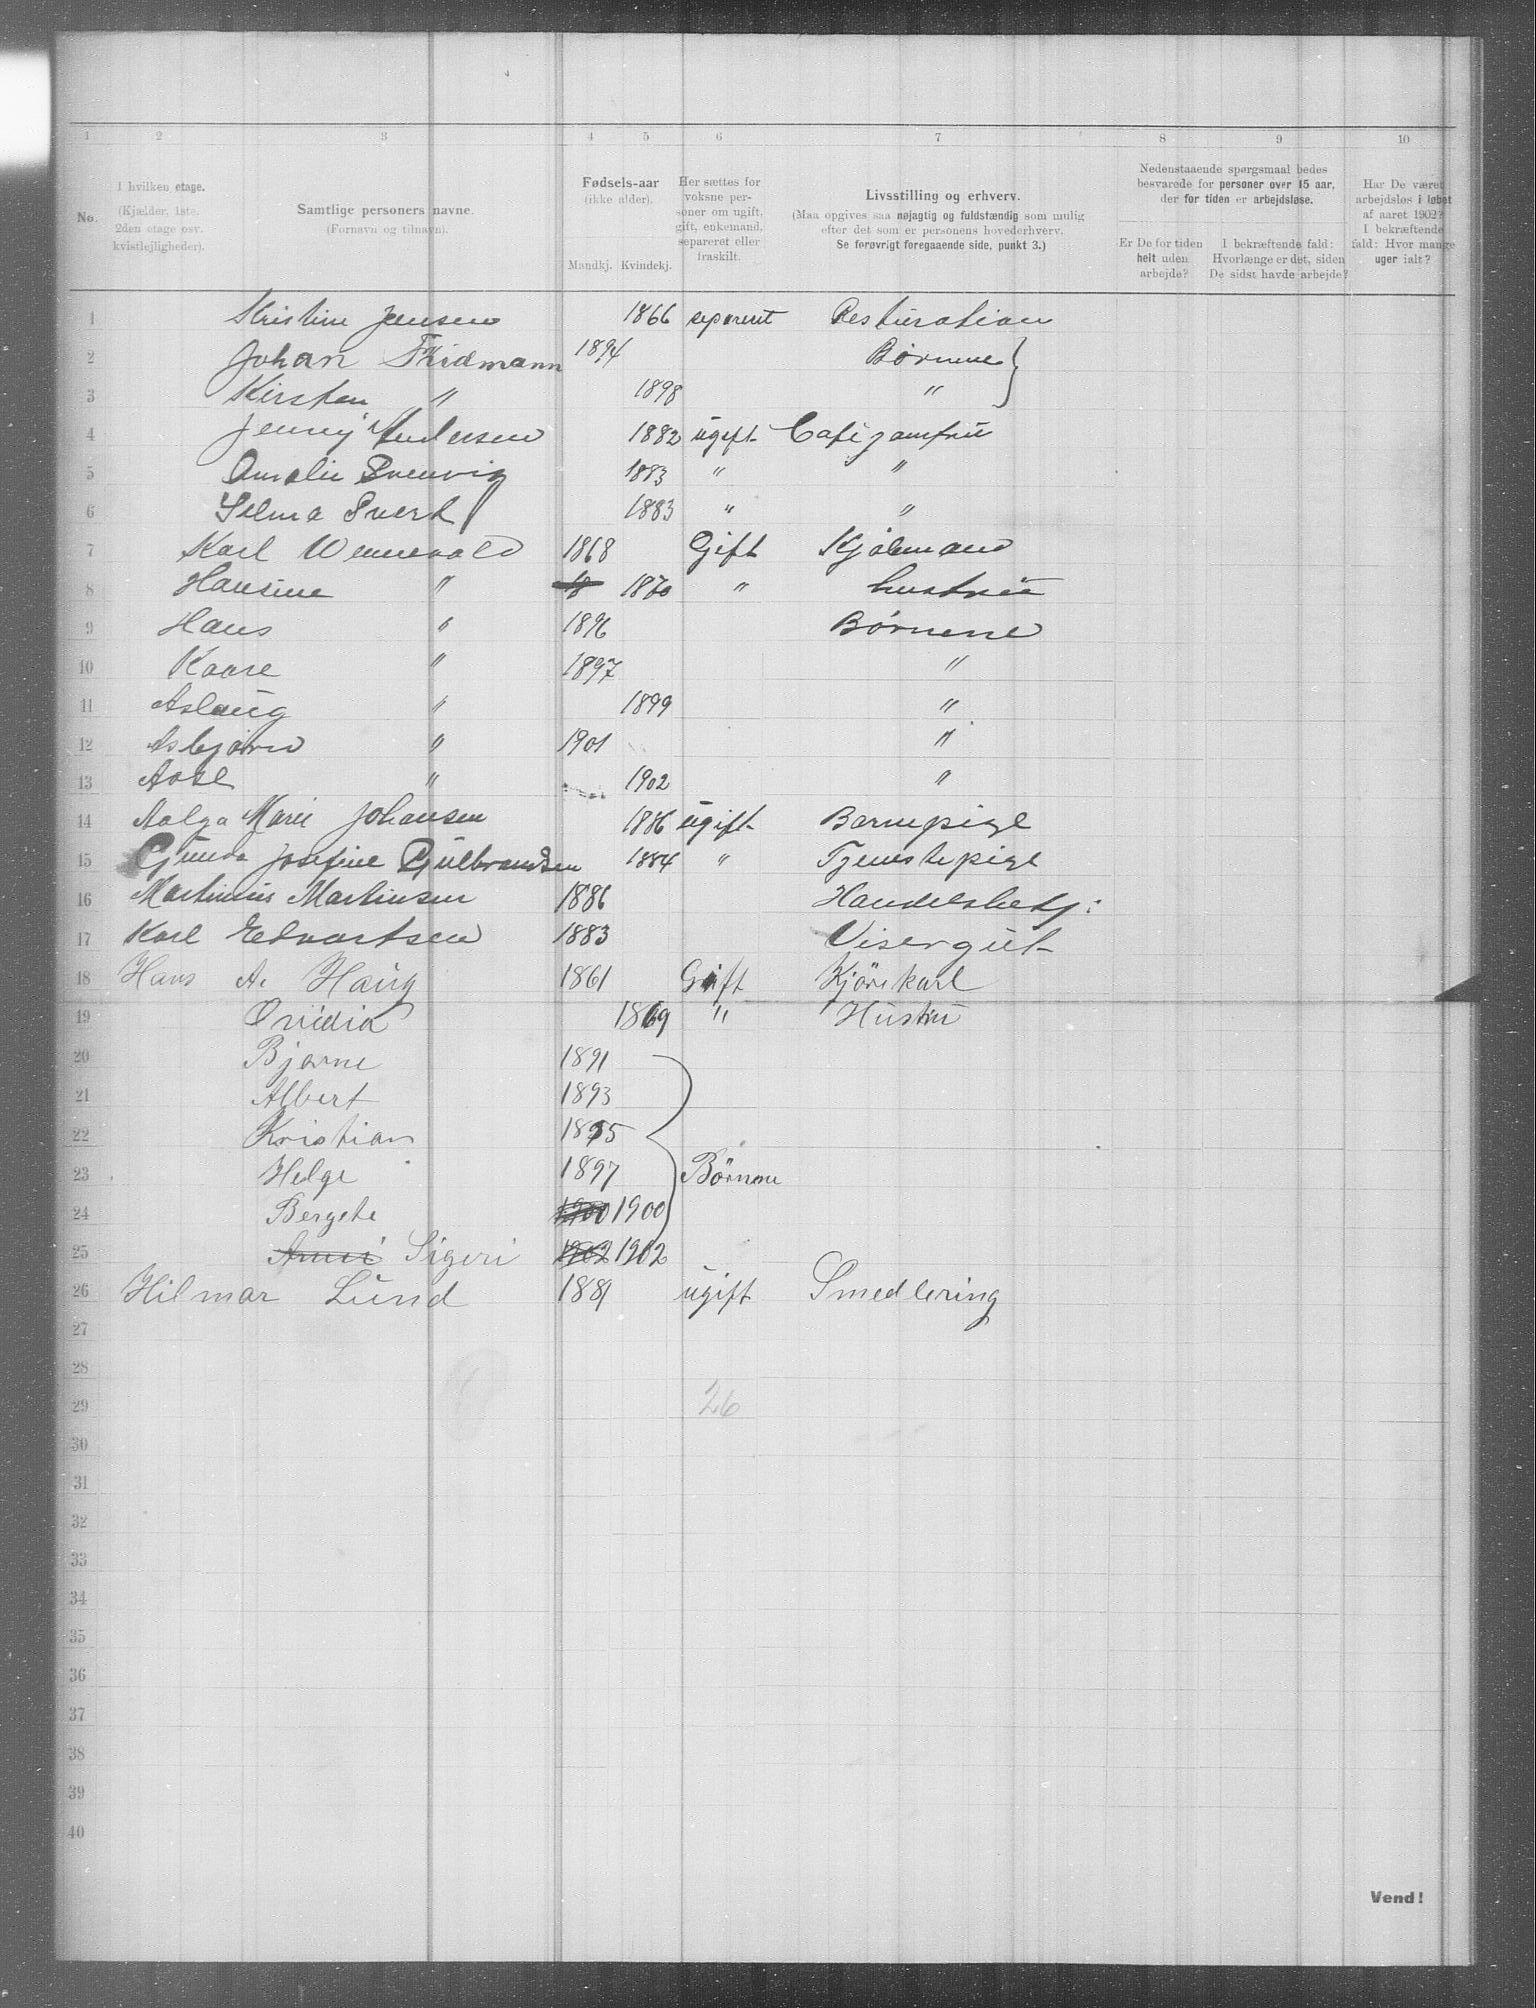 1 2 3 4 5 6 7 8 9 10
No.
I hvilken etage.
(Kjælder, 1ste, 2den etage osv. kvistlejligheder).
Samtlige personers navne.
(Fornavn og tilnavn).
Fødsels-aar
(ikke alder).
Mandkj. Kvindekj.
Her sættes for voksne personer om ugift, gift, enkemand, separeret eller fraskilt.
Livsstilling og erhverv.
(Maa opgives saa nøjagtig og fuldstændig som mulig efter det som er personens hovederhverv. Se forøvrigt foregaaende side, punkt 3.)
Nedenstaaende spørgsmaal bedes besvarede for personer over 15 aar, der for tiden er arbejdsløse.
Er De for tiden helt uden arbejde?
I bekræftende fald: Hvorlænge er det, siden De sidst havde arbejde?
Har De været arbejdsløs i løbet af aaret 1902? I bekræftende fald: Hvor mange uger ialt?
1 Kristine Jensen 1866 separert Resturation
2 Johan Fridmann 1894 Børnene
3 Kirsten " 1898 "
4 Jenny Andersen 1882 ugift Cafejomfru
5 Amalie 1883 " "
6 Selma 1883 " "
7 Karl Wennevold 1868 Gift Kjøbmand
8 Hansine " 18 1870 " hustrue
9 Hans " 1896 Børnene
10 Kaare " 1897 "
11 Aslaug " 1899 "
12 Asbjørn " 1901 "
13 Aase " 1902 "
14 Aalga Marie Johansen 1886 ugift Barnepige
15 Gunda Josefine Gulbrandsen 1884 " Tjenestepige
16 Martinius Martinsen 1886 Handelsbetj:
17 Karl Edvartsen 1883 Visergut
18 Hans A. Haug 1861 Gift Kjørekarl
19 Ovidia 1869 " Hustru
20 Bjarne 1891
21 Albert 1893
22 Kristian 1895
23 Helge 1897 Børnene
24 Bergete 1900 1900
25 Sigeri 1902 1902
26 Hilmar Lund 1881 ugift Smedlering
27
28
29 26
30
31
32
33
34
35
36
37
38
39
40
Vend!